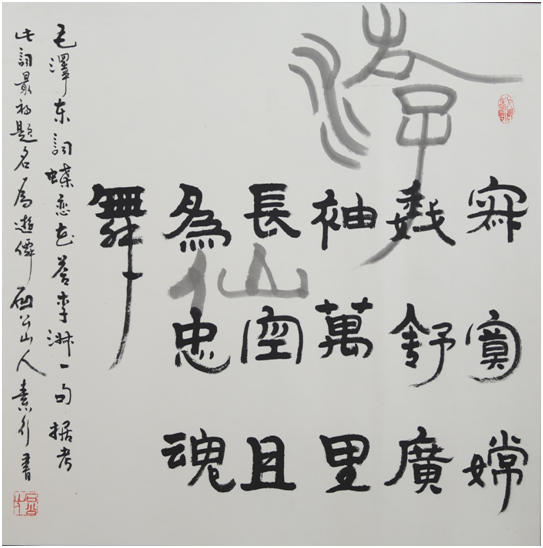 游仙
寂寞嫦
娥舒廣
袖萬里
長空且
為忠魂
舞
毛澤东詞蝶恋花答李淑一句据考
此詞最初題名為遊僊 山人素行書